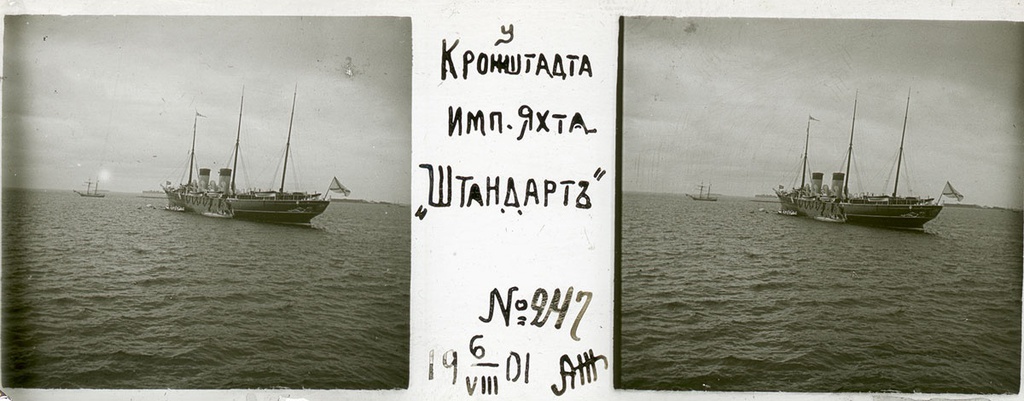 У
Кронштадта
Имп. Яхта
„Штандартъ“
№ 247
19 6/VIII 01 АЖ